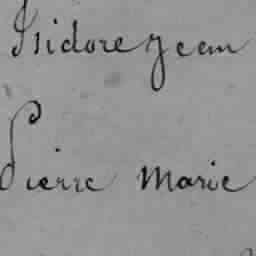 Isidore Jean
Pierre Marie